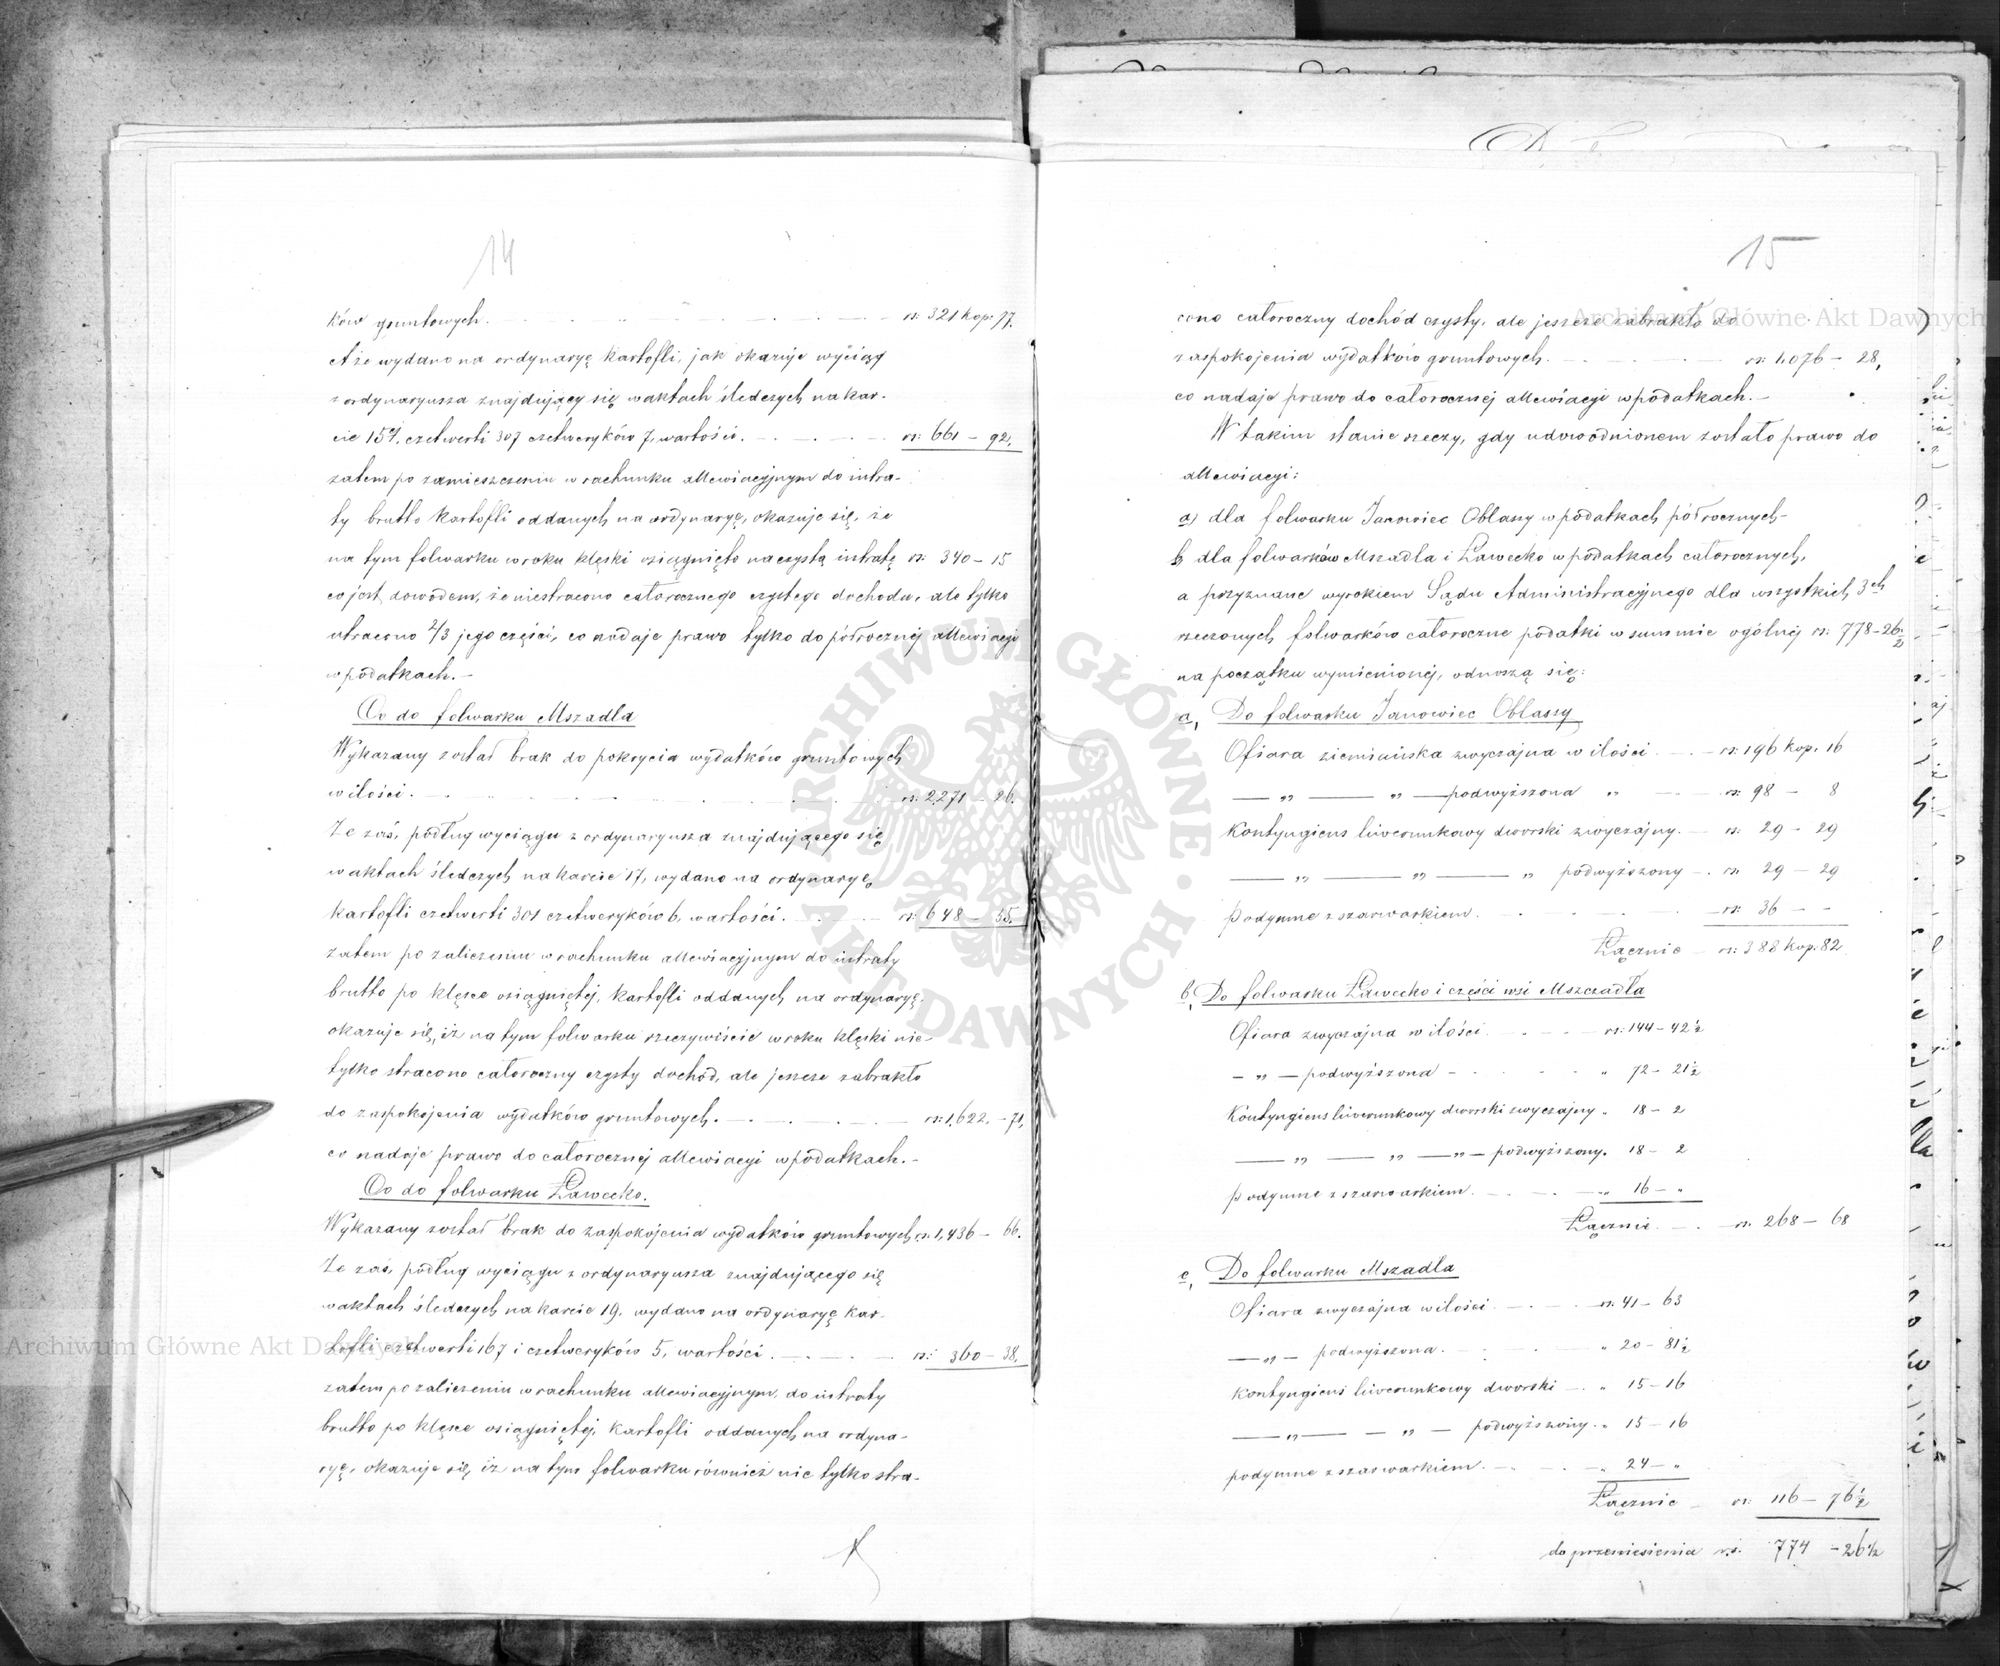 14
ków gruntowych. rs: 321 kop: 77.
A że wydano na ordynaryę kartofli, jak okazuje wyciąg
z ordynaryusza znajdujący się w aktach śledczych na kar-
cie 15ej. czetwerti 307 czetweryków 7, wartości. rs: 661 – 92.
zatem po zamieszczeniu w rachunku allewiacyjnym do intra-
ty brutto kartofli oddanych na ordynaryę, okazuje się, że
na tym folwarku w roku klęski osiągnięto na czystą intratę rs: 340 – 15
co jest dowodem, że nie stracono całorocznego czystego dochodu, ale tylko
utracono 2/3 jego części, co nadaje prawo tylko do półrocznej allewiacyi
w podatkach. –
Co do folwarku Mszadla
Wykazany został brak do pokrycia wydatków gruntowych
w ilości. rs: 2271 – 26.
Że zaś, podług wyciągu z ordynaryusza znajdującego się
w aktach śledczych na karcie 17, wydano na ordynaryę,
kartofli czetwerti 301 czetweryków 6, wartości. rs: 648 – 55.
zatem po zaliczeniu w rachunku allewiacyjnym do intraty
brutto po klęsce osiągniętej, kartofli oddanych na ordynaryę.
okazuje się, iż na tym folwarku rzeczywiście w roku klęski nie-
tylko stracono całoroczny czysty dochód, ale jeszcze zabrakło
do zaspokojenia wydatków gruntowych. rs: 1,622. – 71,
co nadaje prawo do całorocznej allewiacyi w podatkach. –
Co do folwarku Ławecko.
Wykazany został brak do zaspokojenia wydatków gruntowych rs. 1,436 – 66.
Że zaś, podług wyciągu z ordynaryusza znajdującego się
w aktach śledczych na karcie 19. wydano na ordynaryę kar-
tofli czetwerti 167 i czetweryków 5, wartości. rs: 360 – 38.
zatem po zaliczeniu w rachunku allewiacyjnym, do intraty
brutto po klęsce osiągniętej, kartofli oddanych na ordyna-
ryę, okazuje się, iż na tym folwarku również nie tylko stra-
15
cono całoroczny dochód czysty, ale jeszcze zabrakło do
zaspokojenia wydatków gruntowych. rs: 1,076 – 28,
co nadaje prawo do całorocznej allewiacyi w podatkach. –
W takim stanie rzeczy, gdy udowodnionem zostało prawo do
allewiacyi:
a) dla folwarku Janowiec Oblasy w podatkach półrocznych –
b dla folwarków Mszadla i Ławecko w podatkach całorocznych,
a przyznane wyrokiem Sądu Administracyjnego dla wszystkich 3ch
rzeczonych folwarków całoroczne podatki w summie ogólnej rs: 778 – 26 1/2
na początku wymienionej, odnoszą się:
a, Do folwarku Janowiec Oblassy
Ofiara ziemiańska zwyczajna w ilości rs: 196 kop. 16
— „ — „ — podwyższona „ rs: 98 – 8
Kontyngiens liwerunkowy dworski zwyczajny. rs: 29 – 29
— „ — „ — „ podwyższony – rs 29 – 29
podymne z szarwarkiem. rs: 36 – –
Łącznie rs: 388 kop: 82
b, Do folwarku Ławecko i części wsi Mszczadła
Ofiara zwyczajna w ilości rs: 144 – 42 1/2
– „ – podwyższona – „ 72 – 21 1/2
Kontyngiens liwerunkowy dworski zwyczajny „ 18 – 2
— „ — „ — „ – podwyższony. 18 – 2
podymne z szarwarkiem. „ 16 – „
Łącznie. rs. 268 – 68
c, Do folwarku Mszadla
Ofiara zwyczajna w ilości rs. 41 – 63
— „ – podwyższona. „ 20 – 81 1/2
Kontyngiens liwerunkowy dworski – „ 15 – 16
— „ — – „ – podwyższony. „ 15 – 16
podymne z szarwarkiem. „ 24 – „
Łącznie – rs: 116 – 76 1/2
do przeniesienia rs. 774 – 26 1/2
Archiwum Główne Akt Dawnych
Archiwum Główne Akt Dawnych
ARCHIWUM GŁÓWNE AKT DAWNYCH